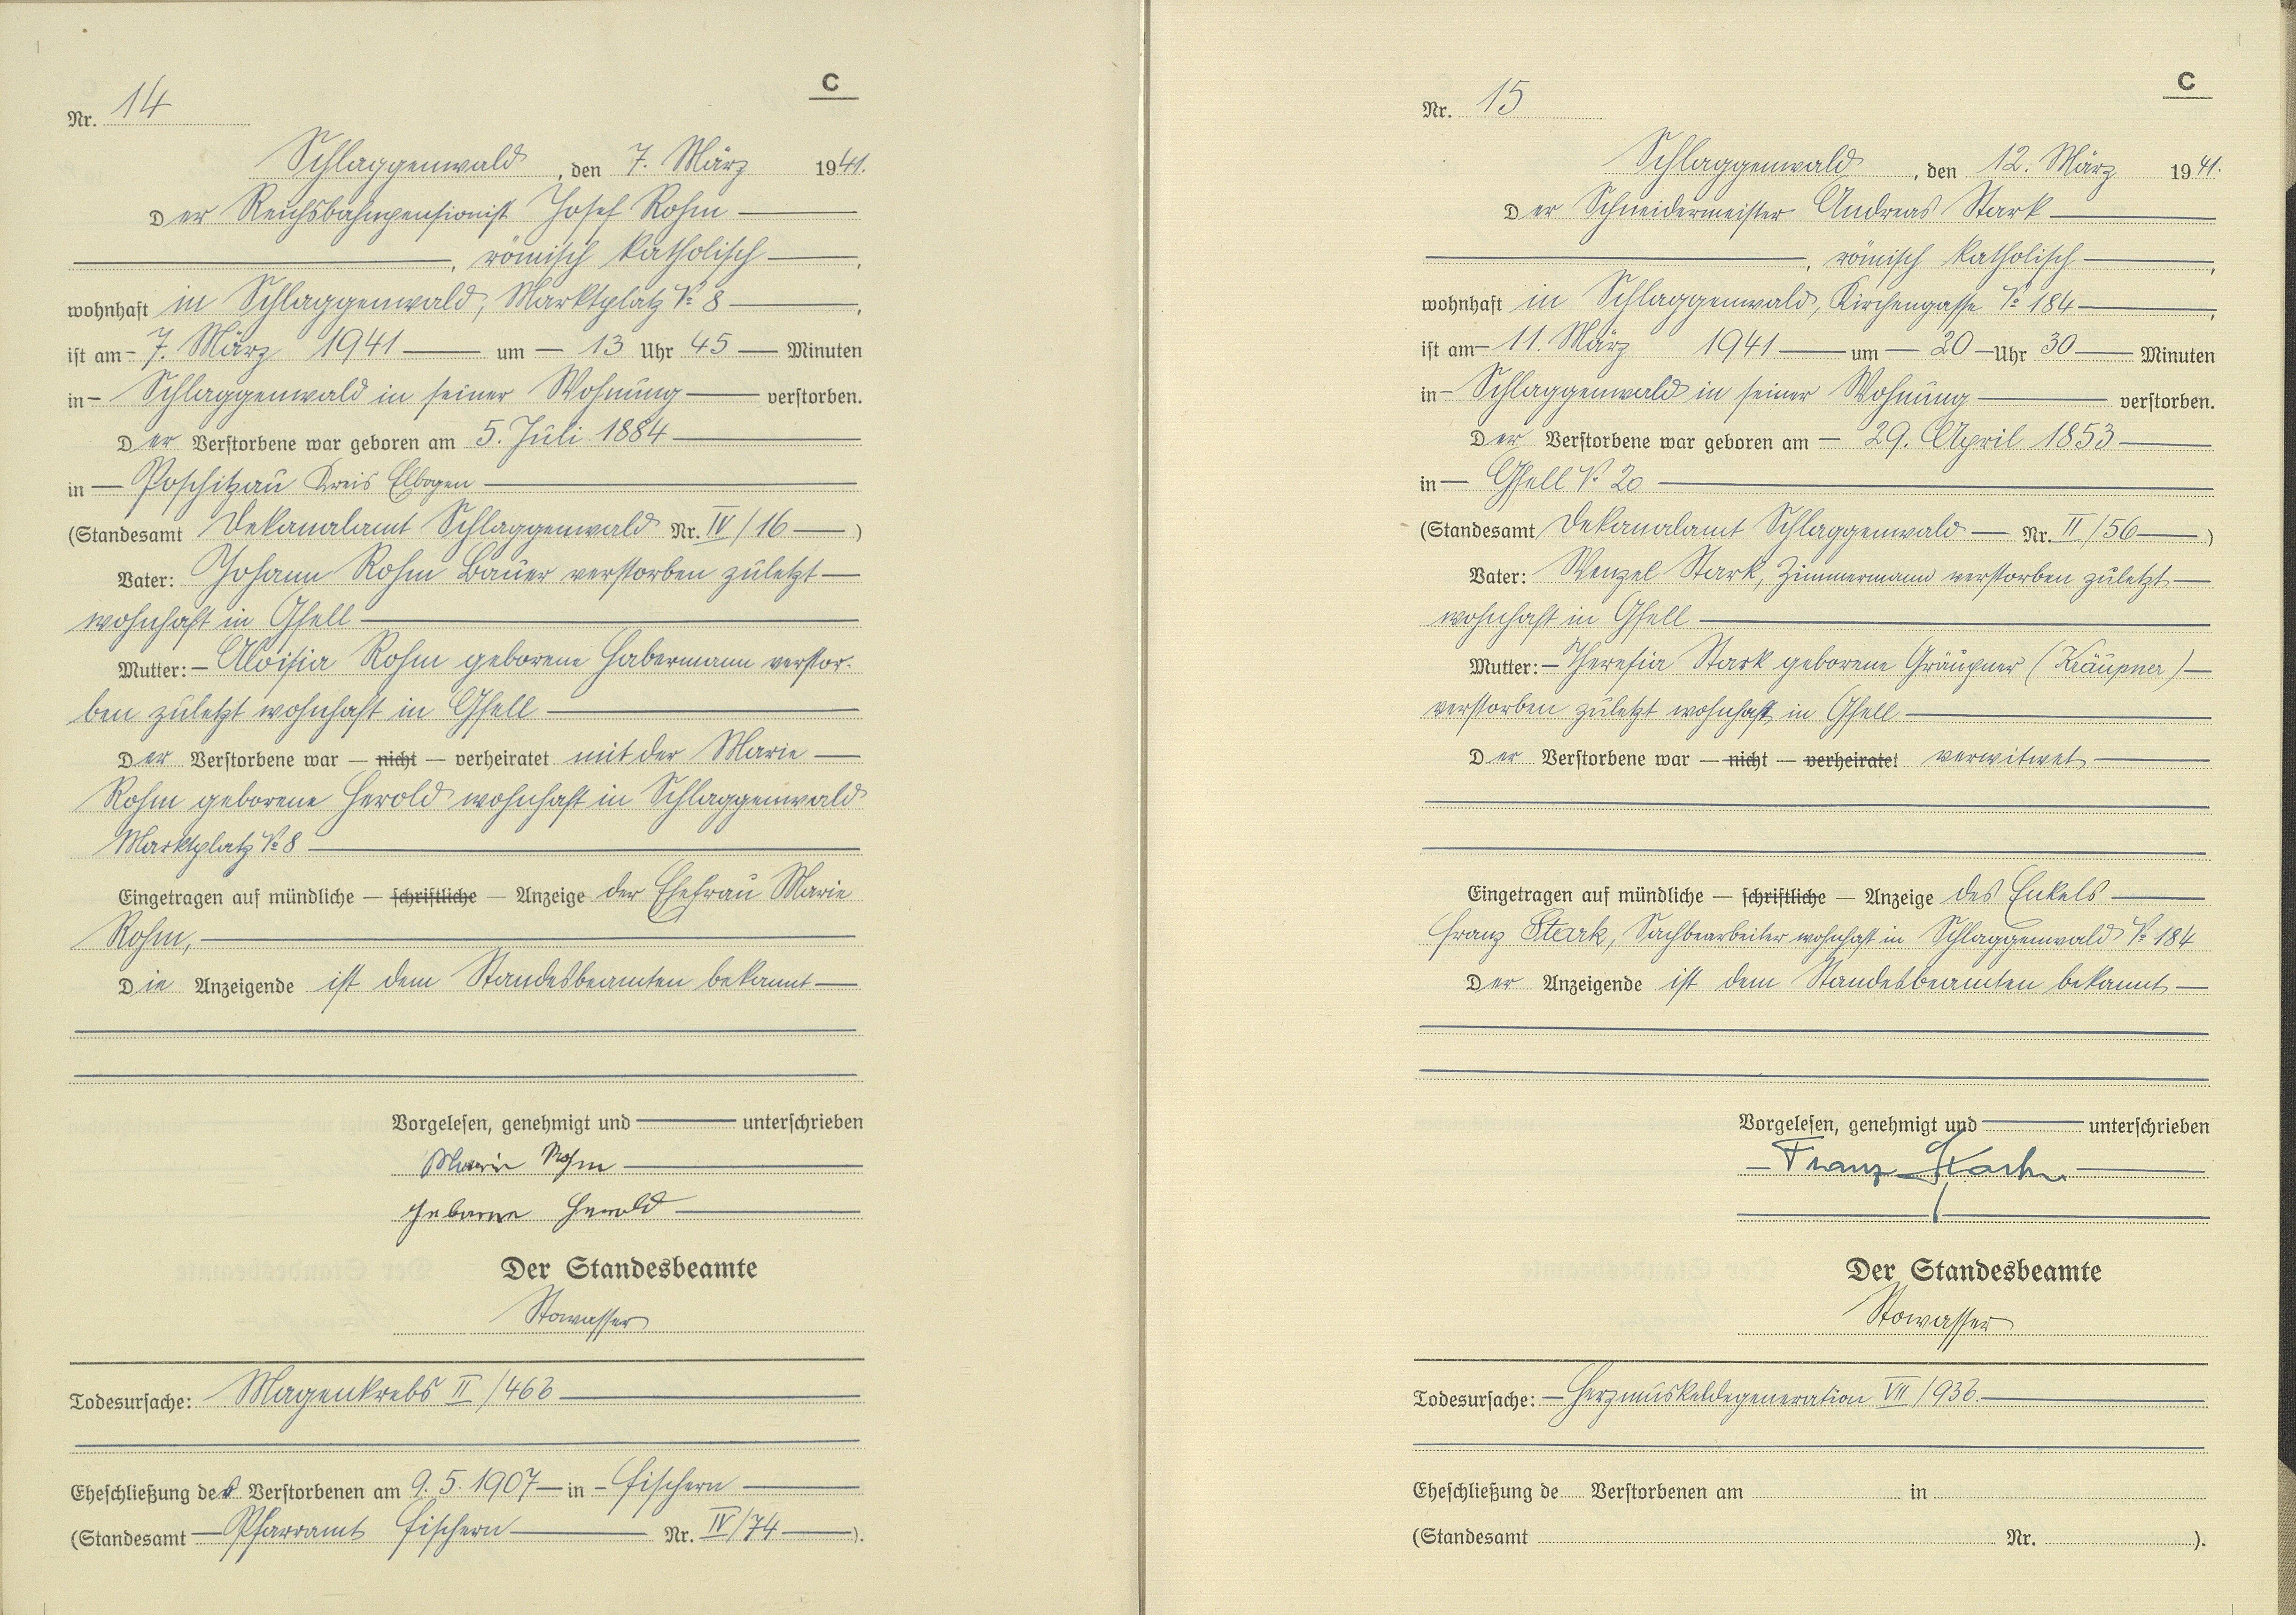 C
Nr. 14
Schlaggenwald, den 7. März 1941.
Der Reichsbahnpensionist Josef Rohm
, römisch katholisch,
wohnhaft in Schlaggenwald, Marktplatz № 8,
ist am 7. März 1941 um 13 Uhr 45 Minuten
in Schlaggenwald in seiner Wohnung verstorben.
Der Verstorbene war geboren am 5. Juli 1884
in Poschitzau Kreis Elbogen
(Standesamt Dekanalamt Schlaggenwald Nr. IV/16)
Vater: Johann Rohm Bauer verstorben zuletzt
wohnhaft in Gfell
Mutter: Aloisia Rohm geborene Habermann verstor-
ben zuletzt wohnhaft in Gfell
Der Verstorbene war — nicht — verheiratet mit der Marie
Rohm geborene Herold wohnhaft in Schlaggenwald
Marktplatz № 8
Eingetragen auf mündliche — schriftliche — Anzeige der Ehefrau Marie
Rohm,
Die Anzeigende ist dem Standesbeamten bekannt
Vorgelesen, genehmigt und unterschrieben
Marie Rohm
geborene Herold
Der Standesbeamte
Stowasser
Todesursache: Magenkrebs II/46b
Eheschließung des Verstorbenen am 9.5.1907 in Fischern
(Standesamt Pfarramt Fischern Nr. IV/74).
C
Nr. 15
Schlaggenwald, den 12. März 1941.
Der Schneidermeister Andreas Stark
, römisch katholisch,
wohnhaft in Schlaggenwald, Kirchengasse № 184,
ist am 11. März 1941 um 20 Uhr 30 Minuten
in Schlaggenwald in seiner Wohnung verstorben.
Der Verstorbene war geboren am 29. April 1853
in Gfell № 20
(Standesamt Dekanalamt Schlaggenwald Nr. II/56)
Vater: Wenzel Stark, Zimmermann verstorben zuletzt
wohnhaft in Gfell
Mutter: Theresia Stark geborene Gräupner (Kräupner)
verstorben zuletzt wohnhaft in Gfell
Der Verstorbene war — nicht — verheiratet verwitwet
Eingetragen auf mündliche — schriftliche — Anzeige des Enkels
Franz Stark, Sachbearbeiter wohnhaft in Schlaggenwald № 184
Der Anzeigende ist dem Standesbeamten bekannt
Vorgelesen, genehmigt und unterschrieben
Franz Stark
Der Standesbeamte
Stowasser
Todesursache: Herzmuskeldegeneration VII/93b.
Eheschließung de Verstorbenen am in
(Standesamt Nr. ).